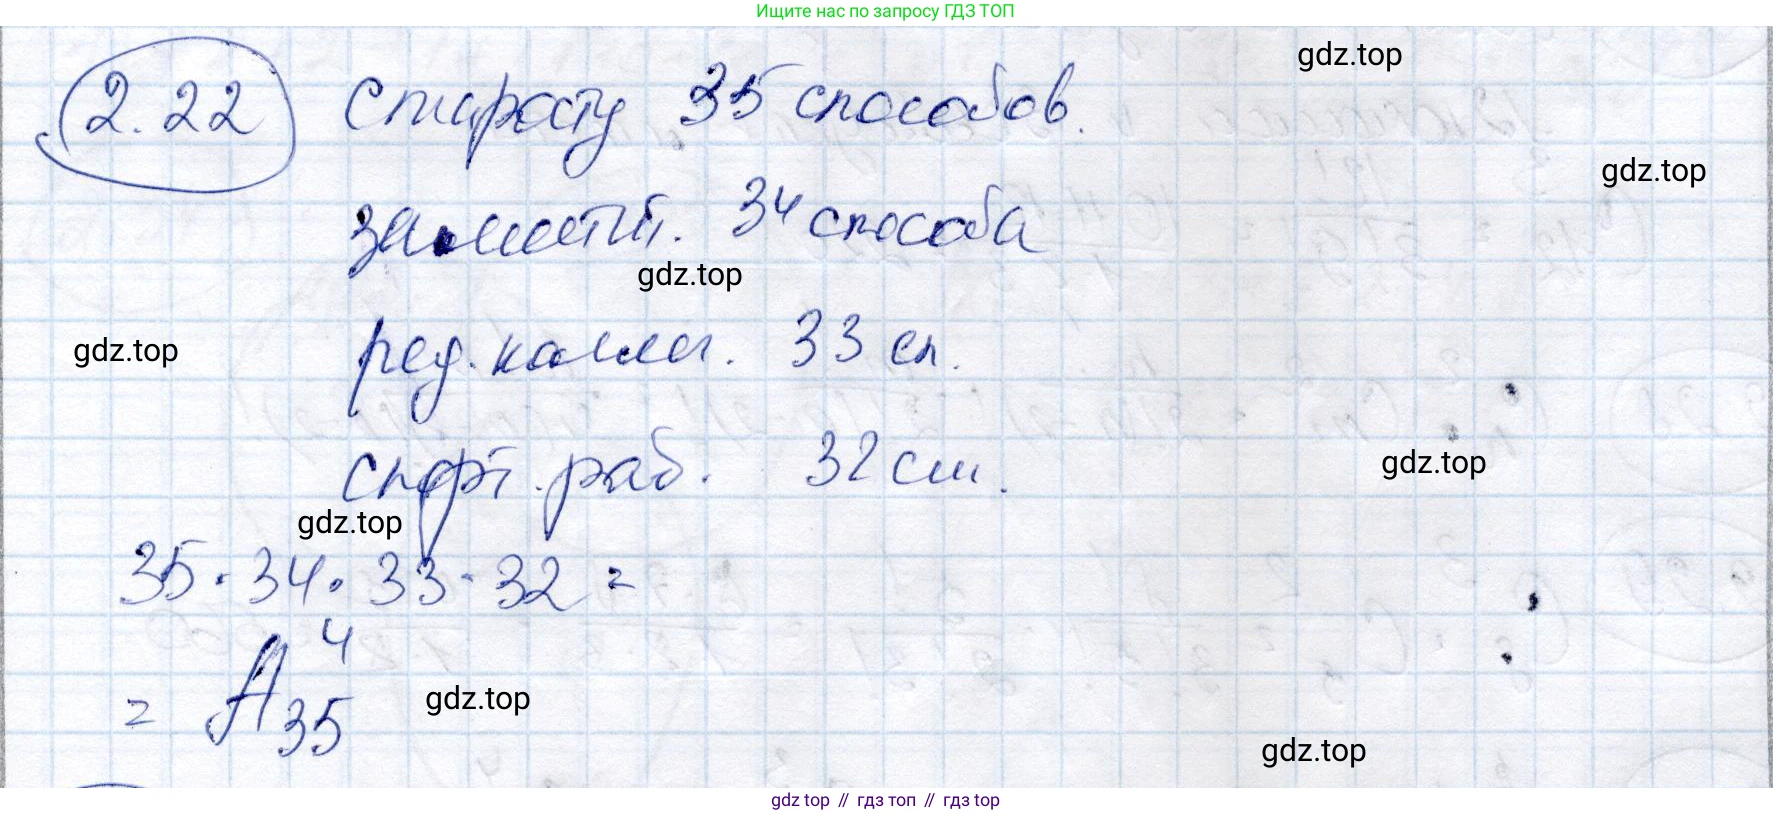 Ищите нас по запросу ГДЗ ТОП
gdz.top
2.22 Старосту 35 способов.
gdz.top
заместит. 34 способа
gdz.top
gdz.top
ред. колле. 33 сп.
gdz.top
спорт. раб. 32 сп.
gdz.top
35 · 34 · 33 · 32 =
= A₃₅⁴
gdz.top
gdz.top
gdz top // гдз топ // gdz top